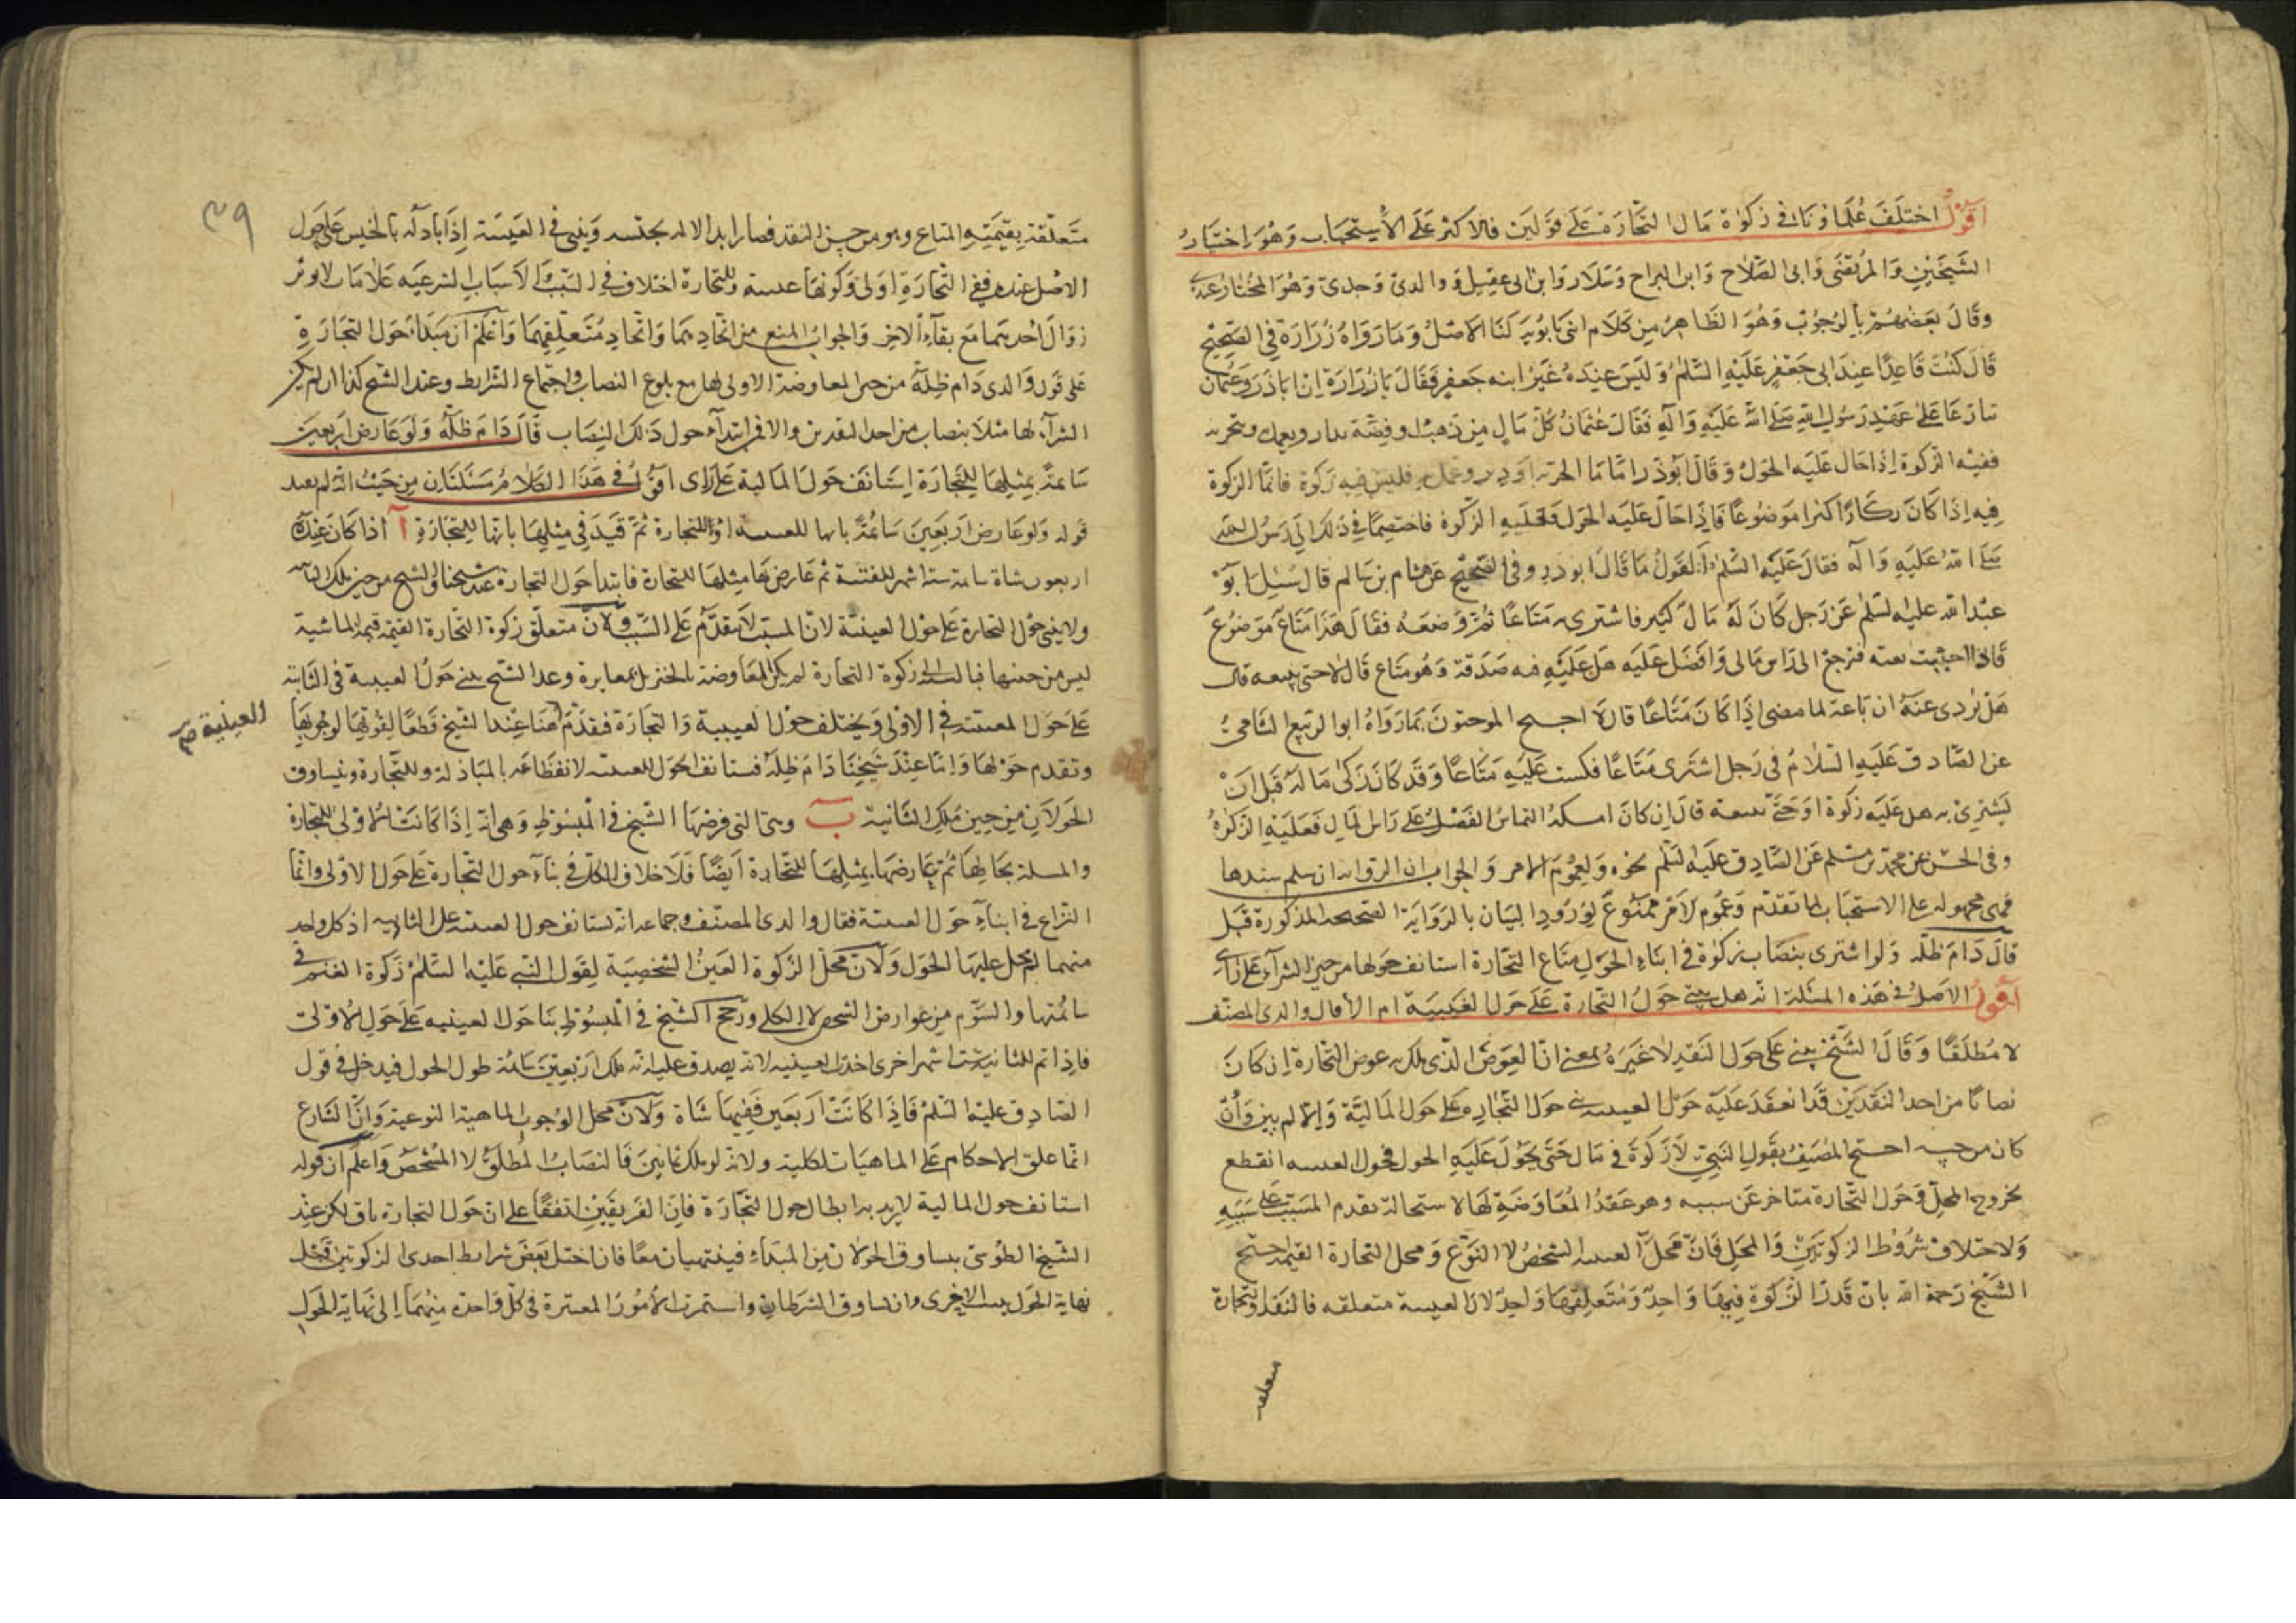 اقول اختلف علماؤنا في زكوة مال التجارة على قولين فالاكثر على الاستحباب وهو اختيار
الشيخين والمرتضى وابى الصلاح وابن البراج وسلار وابن ابى عقيل ووالدى وجدى وهو المختار عندى
وقال بعضهم بالوجوب وهو الظاهر من كلام ابنى بابويه لنا الاصل وما رواه زرارة في الصحيح
قال كنت قاعدا عند ابى جعفر عليه السلم وليس عنده غير ابنه جعفر فقال يا زرارة ان اباذر وعثمان
تنازعا على عهد رسول الله صلى الله عليه وآله فقال عثمان كل مال من ذهب او فضة يدار ويعمل به ويتجر به
ففيه الزكوة اذا حال عليه الحول وقال ابوذر اما ما اتجر به او دير وعمل به فليس فيه زكوة فانما الزكوة
فيه اذا كان ركازا كنزا موضوعا فاذا حال عليه الحول فعليه الزكوة فاختصما في ذلك الى رسول الله
صلى الله عليه وآله فقال عليه السلم القول ما قال ابوذر وفي الصحيح عن هشام بن سالم قال سئل ابو
عبد الله عليه السلم عن رجل كان له مال كثير فاشترى به متاعا ثم وضعه فقال هذا متاع موضوع
فاذا احببت بعته فيرجع الى راس مالى وافضل عليه هل عليه فيه صدقة وهو متاع قال لا حتى يبيعه قال
هل يؤدى عنه ان باعه لما مضى اذا كان متاعا قال لا احتج الموجبون بما رواه ابو الربيع الشامى
عن الصادق عليه السلام في رجل اشترى متاعا فكسد عليه متاعا وقد كان زكى ماله قبل ان
يشترى به هل عليه زكوة او حتى يبيعه قال ان كان امسكه التماس الفضل على راس المال فعليه الزكوة
وفي الحسن عن محمد بن مسلم عن الصادق عليه السلم نحوه ولعموم الامر والجواب ان الرواية ان سلم سندها
فهى محمولة على الاستحباب لما تقدم وعموم الامر ممنوع لورود البيان بالرواية الصحيحة المذكورة قبل
قال دام ظله ولو اشترى بنصاب زكوة في اثناء الحول متاع التجارة استانف حولها من حين الشراء على راى
اقول الاصل في هذه المسئلة انه هل يبنى حول التجارة على حول العينية ام لا فقال والدى المصنف
لا مطلقا وقال الشيخ يبنى على حول النقد لا غيره بمعنى ان العوض الذى ملك به عوض التجارة ان كان
نصابا من احد النقدين قد انعقد عليه حول العينية بنى حول التجارة على حول المالية والا لم يبن وان
كان من جنسه احتج المصنف بقول النبي لا زكوة في مال حتى يحول عليه الحول فحول العينية انقطع
بخروج المحل وحول التجارة متاخر عن سببه وهو عقد المعاوضة لها لاستحالة تقدم المسبب على سببه
ولاختلاف شروط الزكوتين والمحل فان محل العينية الشخص لا النوع ومحل التجارة القيمة احتج
الشيخ رحمة الله بان قدر الزكوة فيهما واحد ومتعلقهما واحد لان العينية متعلقه فالنقد والتجارة
متعلقه
٣٩
متعلقة بقيمة المتاع وهو من جنس النقد فصار ابدالا له بجنسه ويبنى في العينية اذا بادله بالجنس على حول
الاصل عنده ففى التجارة اولى وكونها عينية وللتجارة اختلاف في السبب والاسباب الشرعيه علامات لا يوثر
زوال احديهما مع بقاء الاخر والجواب المنع من اتحادهما واتحاد متعلقهما واعلم ان مبدأ حول التجارة
على قول والدى دام ظله من حين المعاوضة الاولى لها مع بلوغ النصاب واجتماع الشرايط وعند الشيخ كذا ان لم يكن
الشراء لها مثلا بنصاب من احد النقدين والا فمن ابتداء حول ذلك النصاب قال دام ظله ولو عارض اربعين
سائمة بمثلها للتجارة استانف حول المالية على راى اقول في هذا الكلام مسئلتان من حيث انه لم يقيد
قوله ولو عارض اربعين سائمة بانها للعينية او للتجارة ثم قيد في مثلها بانها للتجارة آ اذا كان عنده
اربعون شاة سائمة ستة اشهر للقنية ثم عارضها مثلها للتجارة فابتدأ حول التجارة عند شيخنا والشيخ من حين ملك الثانية
ولا يبنى حول التجارة على حول العينية لان المسبب لا يتقدم على السبب ولان متعلق زكوة التجارة القيمة وقيمة الماشية
ليس من جنسها فبالنسبة الى زكوة التجارة لم يكن المعاوضة بالجنس بل بمغايرة وعند الشيخ يبنى حول العينية في الثانية
على حول العينية في الاولى ويختلف حول العينية والتجارة فيقدم هنا عند الشيخ قطعا لقوتها لوجوبها
العينية صح
وتقدم حولها واما عند شيخنا دام ظله فيستانف الحول للعينية لانقطاعه بالمبادلة وللتجارة ويتساوق
الحولان من حين ملك الثانية ب وهى التى فرضها الشيخ في المبسوط وهى انه اذا كانت الاولى للتجارة
والمسئلة بحالها ثم عارضها بمثلها للتجارة ايضا فلا خلاف للكل في بناء حول التجارة على حول الاولى وانما
النزاع في ابناء حول العينية فقال والدى المصنف وجماعة انه يستانف حول العينية على الثانية اذ كل واحد
منهما لم يحل عليها الحول ولان محل الزكوة العين الشخصية لقول النبي عليه السلم زكوة الغنم في
سائمتها والسوم من عوارض الشخص لا الكلى ورجح الشيخ في المبسوط بناء حول العينيه على حول الاولى
فاذا تم للثانية ستة اشهر اخرى اخذت العينية لانه يصدق عليه انه ملك اربعين سائمة طول الحول فيدخل في قول
الصادق عليه السلم فاذا كانت اربعين ففيها شاة ولان محل الوجوب الماهية النوعية وان الشارع
انما علق الاحكام على الماهيات الكلية ولانه لو ملك ثمانين فالنصاب المطلق لا المشخص واعلم ان قوله
استانف حول المالية لا يريد به ابطال حول التجارة فان الفريقين اتفقا على ان حول التجارة باق لكن عند
الشيخ الطوسى يساوق الحولان من المبداء فينتهيان معا فان اختل بعض شرايط احدى الزكوتين قبل
نهاية الحول يثبت الاخرى وان تساوق الشرطان واستمرت الامور المعتبرة في كل واحدة منهما الى نهاية الحول